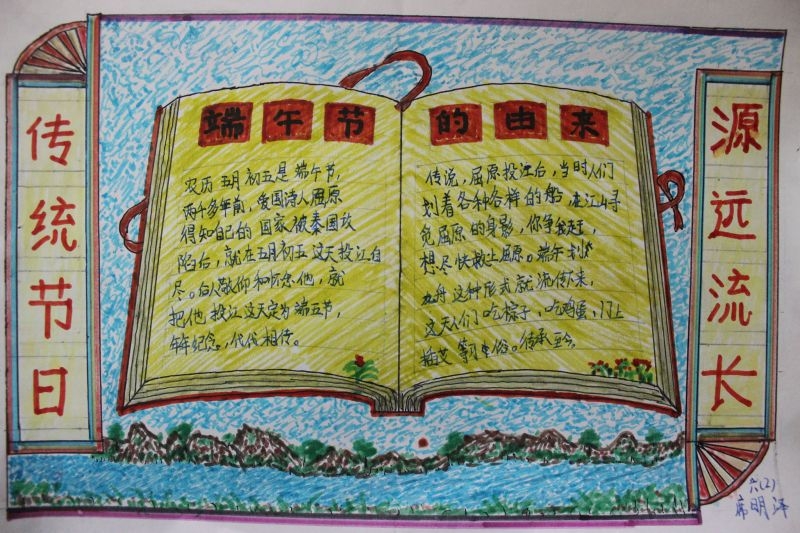 传统节日
端午节的由来
农历五月初五是端午节，
两千多年前，爱国诗人屈原
得知自己的国家被秦国攻
陷后，就在五月初五这天投江自
尽。后人敬仰和怀念他，就
把他投江这天定为端五节，
年年纪念，代代相传。
传说，屈原投江后，当时人们
划着各种各样的船，在江上寻
觅屈原的身影，你争我赶，
想尽快救上屈原。端午划
龙舟这种形式就流传下来，
这天人们吃粽子，吃鸡蛋，门上
插艾等习俗。传承至今。
源远流长
六(2)
席明泽